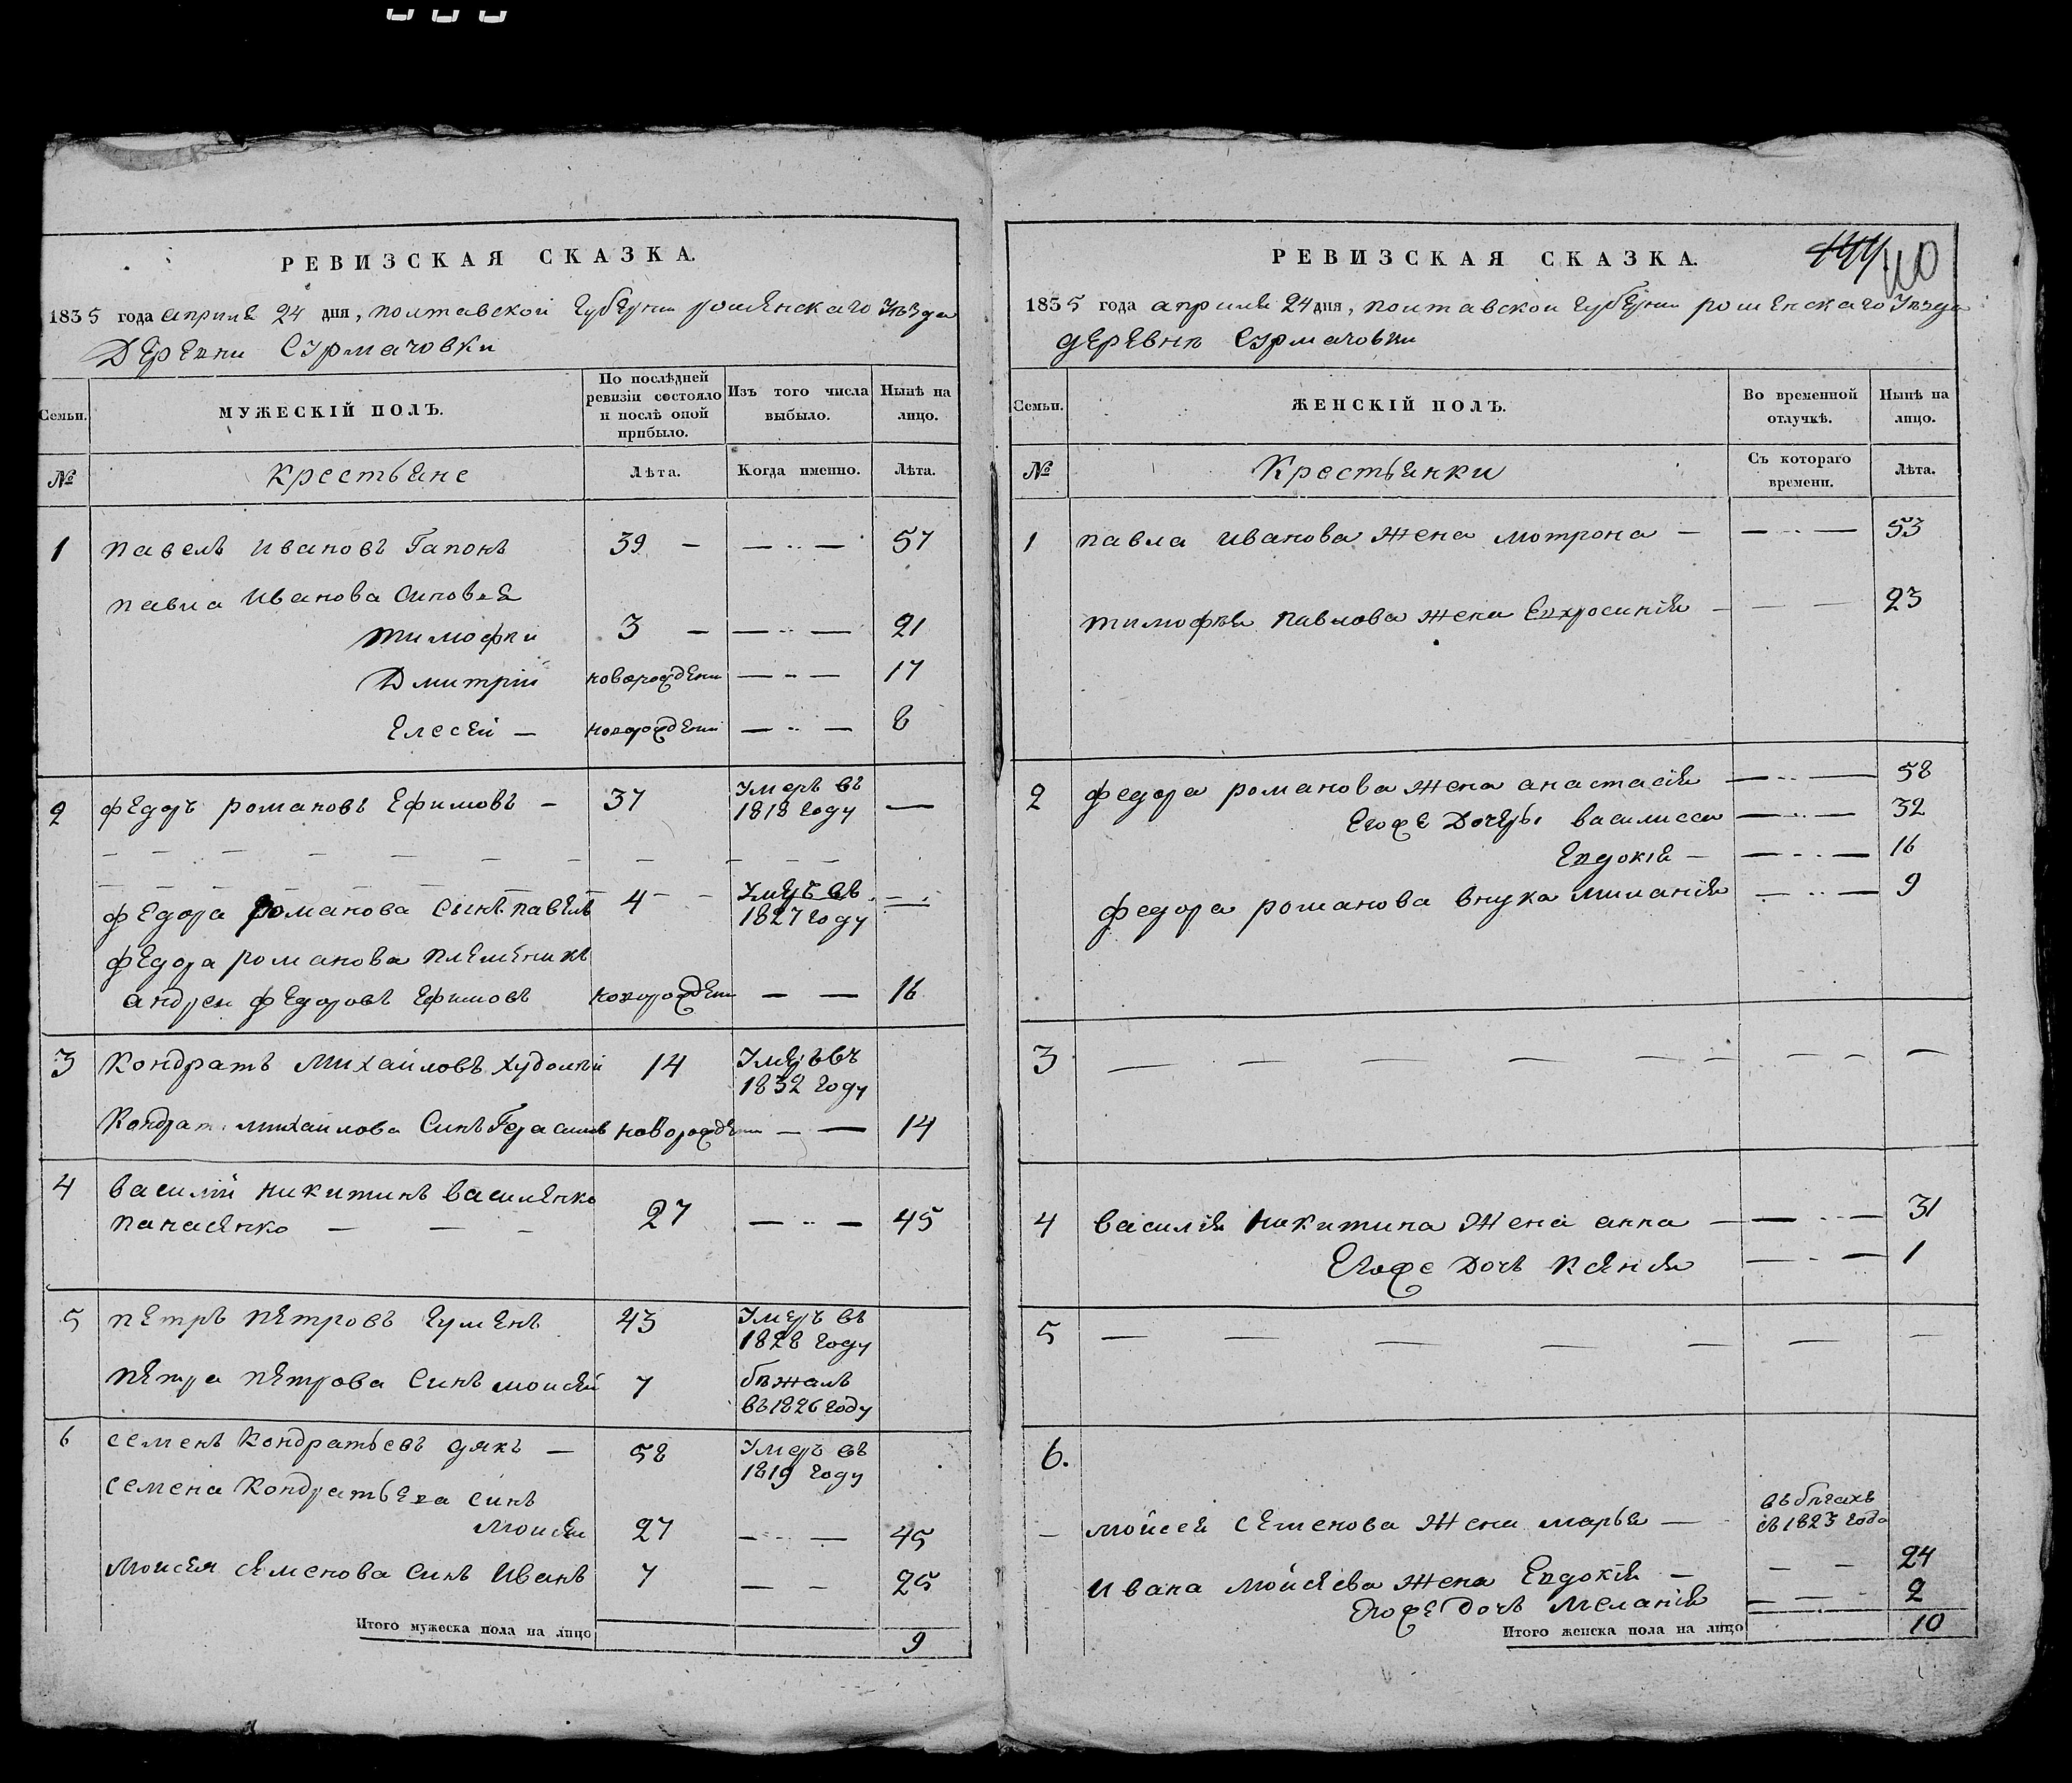 РЕВИЗСКАЯ СКАЗКА.
1835 года апреля 24 дня, полтавской Губернии роменскаго Уезда
Деревни Сурмачовки
Семьи.
МУЖЕСКІЙ ПОЛЪ.
По послѣдней ревизіи состояло и послѣ оной прибыло.
Изъ того числа выбыло.
Нынѣ на лицо.
№
Крестьяне
Лѣта.
Когда именно.
Лѣта.
1 павелъ ивановъ Гапонъ 39 — — .. — 57
павла Иванова Синовья
тимофѣи 3 — — .. — 21
Дмитрій новорождени — .. — 17
Елесей — новорождени — .. — 8
2 федоръ романовъ Ефимовъ — 37 Умеръ въ 1818 году —
федора романова сынъ павелъ 4 Умеръ въ 1827 году —
федора романова племеникъ
андреи федоровъ Ефимовъ новорождени — — 16
3 Кондратъ Михайловъ худолѣй 14 Умеръ въ 1832 году
Кондрат михайлова Синъ Герасимъ новорождени — — 14
4 василій никитинъ василенко
панасенко — — — 27 — .. — 45
5 петръ петровъ гуменъ 43 Умеръ въ 1828 году
петра петрова Синъ моисей 7 бѣжалъ въ 1826 году
6 семенъ Кондратьевъ дякъ — 58 Умеръ въ 1819 году
семена Кондратьева синъ
Моисеи 27 — .. — 45
Моисея семенова синъ Иванъ 7 — — 25
Итого мужеска пола на лицо 9
РЕВИЗСКАЯ СКАЗКА.
110
1835 года апреля 24 дня, полтавской губернии роменскаго Уезда
деревнѣ Сурмачовки
Семьи.
ЖЕНСКІЙ ПОЛЪ.
Во временной отлучкѣ.
Нынѣ на лицо.
№
Крестьянки
Съ котораго времени.
Лѣта.
1 павла иванова жена мотрона — — .. — 53
тимофѣя павлова жена Евхросинія — — — 23
2 федора романова жена анастасія — .. — 58
Егоже Дочеры василисса — .. — 32
Евдокія — — .. — 16
федора романова внука миланія — .. — 9
3 — — — — — — — — —
4 василія никитина жена анна — — .. — 31
Егоже Дочъ Ксенія — .. — 1
5 — — — — — — —
6.
— мойсея семенова жена марья — въ бѣгахъ съ 1823 года
ивана мойсеева жена Евдокія — — — 24
Егоже Дочъ Меланія — — 2
Итого женска пола на лицо 10